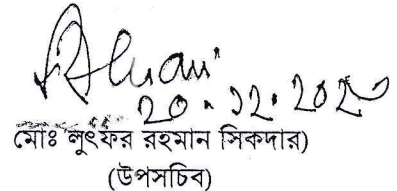 20.12.202
মোঃ লুৎফর রহমান সিকদার)
(উপসচিব)